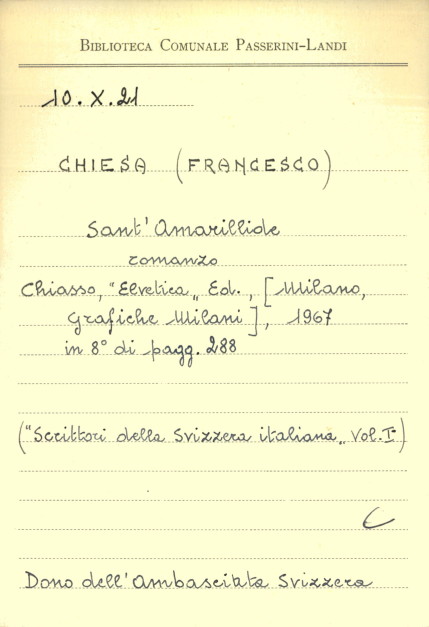 BIBLIOTECA COMUNALE PASSERINI-LANDI
10.X.21
CHIESA (FRANCESCO)
Sant'Amarillide
romanzo
Chiasso, "Elvetica„ Ed., [Milano,
Grafiche Milani], 1967
in 8° di pagg. 288
("Scrittori della Svizzera italiana„ Vol. I°)
C
Dono dell'Ambasciata Svizzera